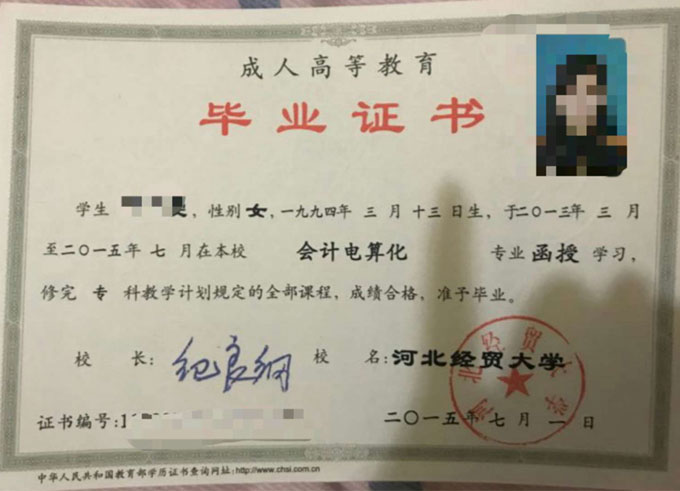 成人高等教育
毕业证书
学生 ，性别 女，一九九四年 三 月 十三 日生，于二〇一三年 三 月
至二〇一五年 七 月在本校 会计电算化 专业 函授 学习，
修完 专 科教学计划规定的全部课程，成绩合格，准予毕业。
校 长： 纪良纲 校 名：河北经贸大学
河北经贸大学
证书编号：1 二〇一五年 七 月 一 日
中华人民共和国教育部学历证书查询网址：http://www.chsi.com.cn